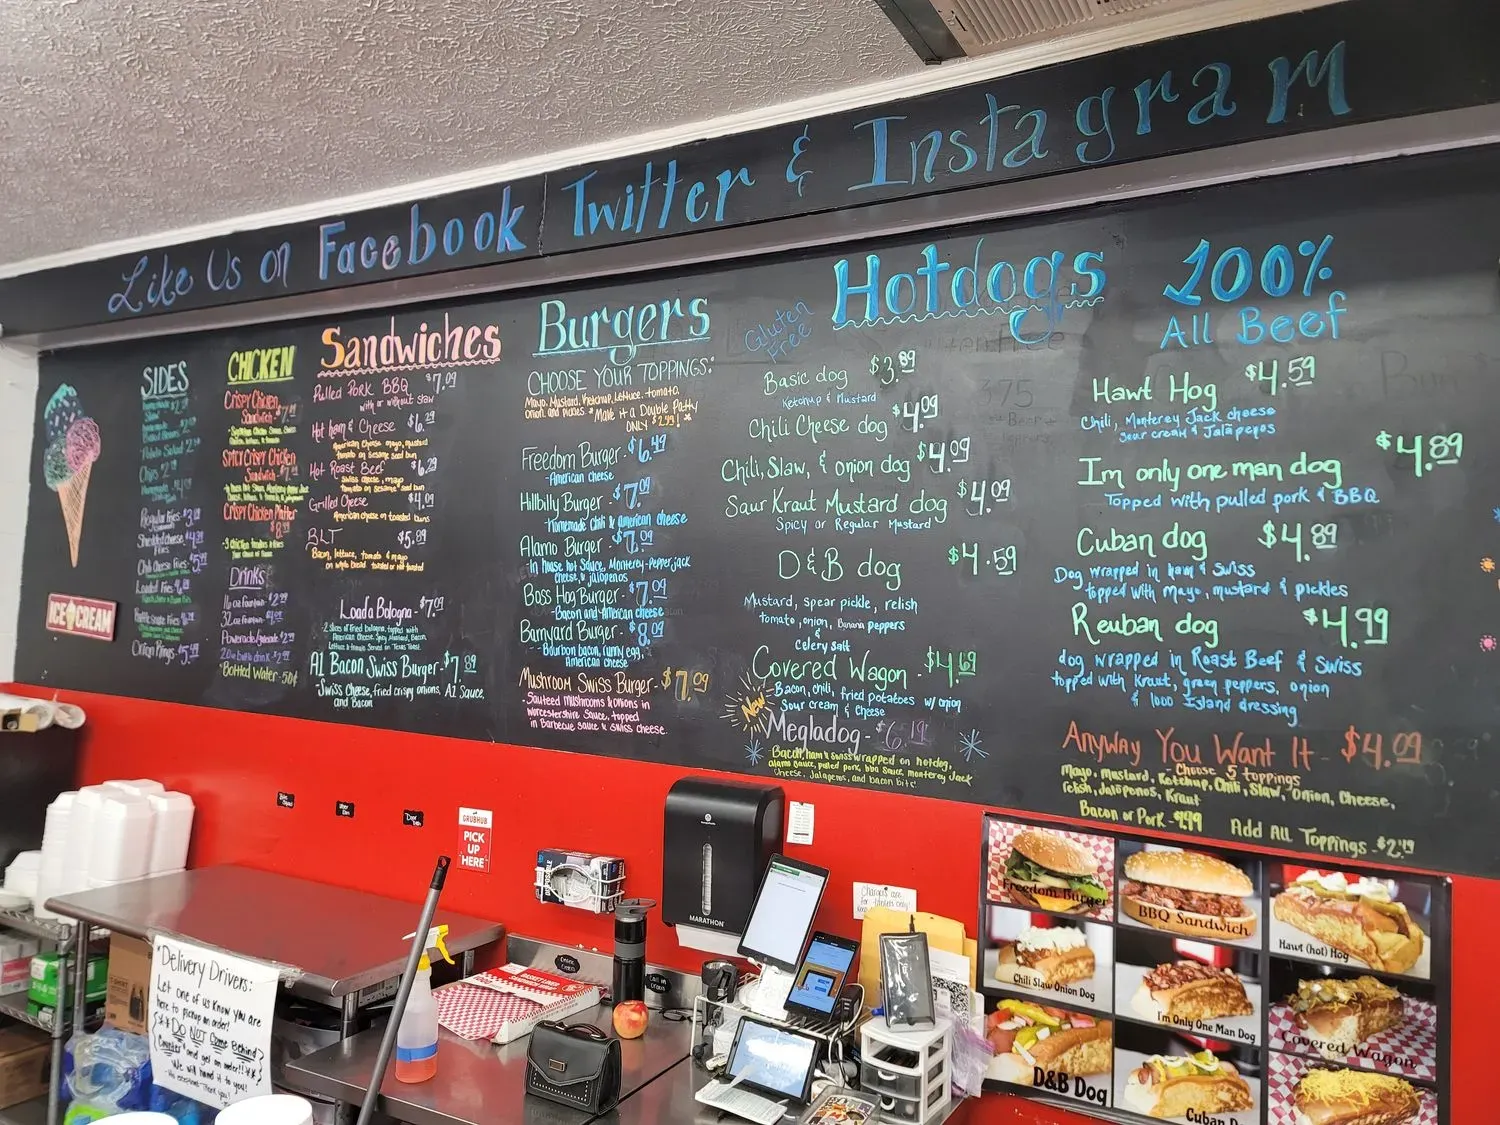 Like Us on Facebook Twitter & Instagram
SIDES
Potato Salad
Chips
Regular Fries
Shredded cheese Fries
Chili Cheese Fries
Loaded Fries
Onion Rings
ICE CREAM
CHICKEN
Crispy Chicken
Sandwich
Spicy Crispy Chicken
Sandwich
Crispy Chicken Platter
Drinks
16 oz fountain
32 oz fountain
Powerade
20oz bottle drink
Bottled Water - 50¢
Sandwiches
Pulled Pork BBQ $7.09
with or without slaw
Hot ham & Cheese $6.29
American cheese, mayo, mustard
tomato on sesame seed bun
Hot Roast Beef $6.29
Swiss cheese, mayo
tomato on sesame seed bun
Grilled Cheese $4.09
American cheese on toasted buns
BLT $5.89
Bacon, lettuce, tomato & mayo
on wheat bread toasted or not toasted
Loada Bologna - $7.09
- 2 slices of fried bologna, topped with
American Cheese, Spicy Mustard, Bacon,
Lettuce & tomato Served on Texas Toast.
A1 Bacon Swiss Burger - $7.89
- Swiss Cheese, fried crispy onions, A1 Sauce,
and Bacon
Burgers
CHOOSE YOUR TOPPINGS:
Mayo, Mustard, Ketchup, Lettuce, tomato,
Onion, and Pickles. *Make it a Double Patty
ONLY $2.99!*
Freedom Burger - $6.49
- American cheese
Hillbilly Burger - $7.09
- Homemade Chili & American cheese
Alamo Burger - $7.09
- In house hot Sauce, Monterey-Pepperjack
cheese, & jalapenos
Boss Hog Burger - $7.09
- Bacon and American cheese
Barnyard Burger - $8.09
- Bourbon bacon, runny egg,
American cheese
Mushroom Swiss Burger - $7.09
- Sauteed mushrooms & onions in
Worcestershire Sauce, topped
in Barbecue sauce & swiss cheese.
Gluten
Free
Hotdogs
100%
All Beef
Basic dog $3.89
Ketchup & Mustard
Chili Cheese dog $4.09
Chili, Slaw, & onion dog $4.09
Saur Kraut Mustard dog $4.09
Spicy or Regular Mustard
D&B dog $4.59
Mustard, spear pickle, relish
tomato, onion, Banana peppers
&
Celery Salt
Covered Wagon - $4.69
Bacon, chili, fried potatoes w/ onion
Sour cream & Cheese
New
Megladog - $6.19
Bacon, ham & swiss wrapped on hotdog,
alamo sauce, pulled pork, bbq sauce, monterey Jack
Cheese, Jalapenos, and bacon bits
Hawt Hog $4.59
Chili, Monterey Jack cheese
Sour cream & Jalapenos
Im only one man dog $4.89
Topped with pulled pork & BBQ
Cuban dog $4.89
Dog wrapped in ham & swiss
topped with mayo, mustard & pickles
Reuban dog $4.99
dog wrapped in Roast Beef & Swiss
topped with Kraut, green peppers, onion
& 1000 Island dressing
Anyway You Want It - $4.09
- Choose 5 toppings
Mayo, mustard, Ketchup, Chili, Slaw, Onion, Cheese,
relish, Jalapenos, Kraut
Bacon or Pork
Add All Toppings - $2.19
GRUBHUB
PICK
UP
HERE
MARATHON
Chargers are
for tablets only!
"Delivery Drivers:
Let one of us know you are
here to pickup an order!
**DO NOT Come Behind
Counter and get an order!!**
We will hand it to you!
Freedom Burger
BBQ Sandwich
Hawt (hot) Hog
Chili Slaw Onion Dog
I'm Only One Man Dog
Covered Wagon
D&B Dog
Cuban D